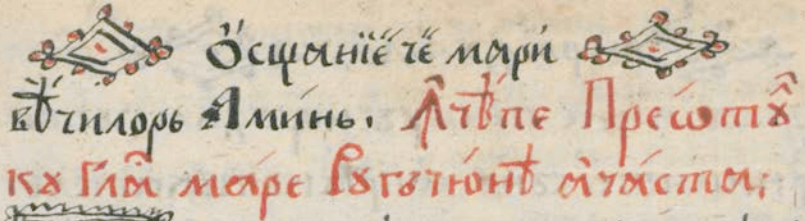 Ѻ҆сща́нїе че ма́ри
вѣ́чилорь Ами́нь. Ꙟчѣ́пе Прео́тꙋ̑
кꙋ Гла҃ ма́ре Рꙋгъчю́нѣ а҆ча́ста;